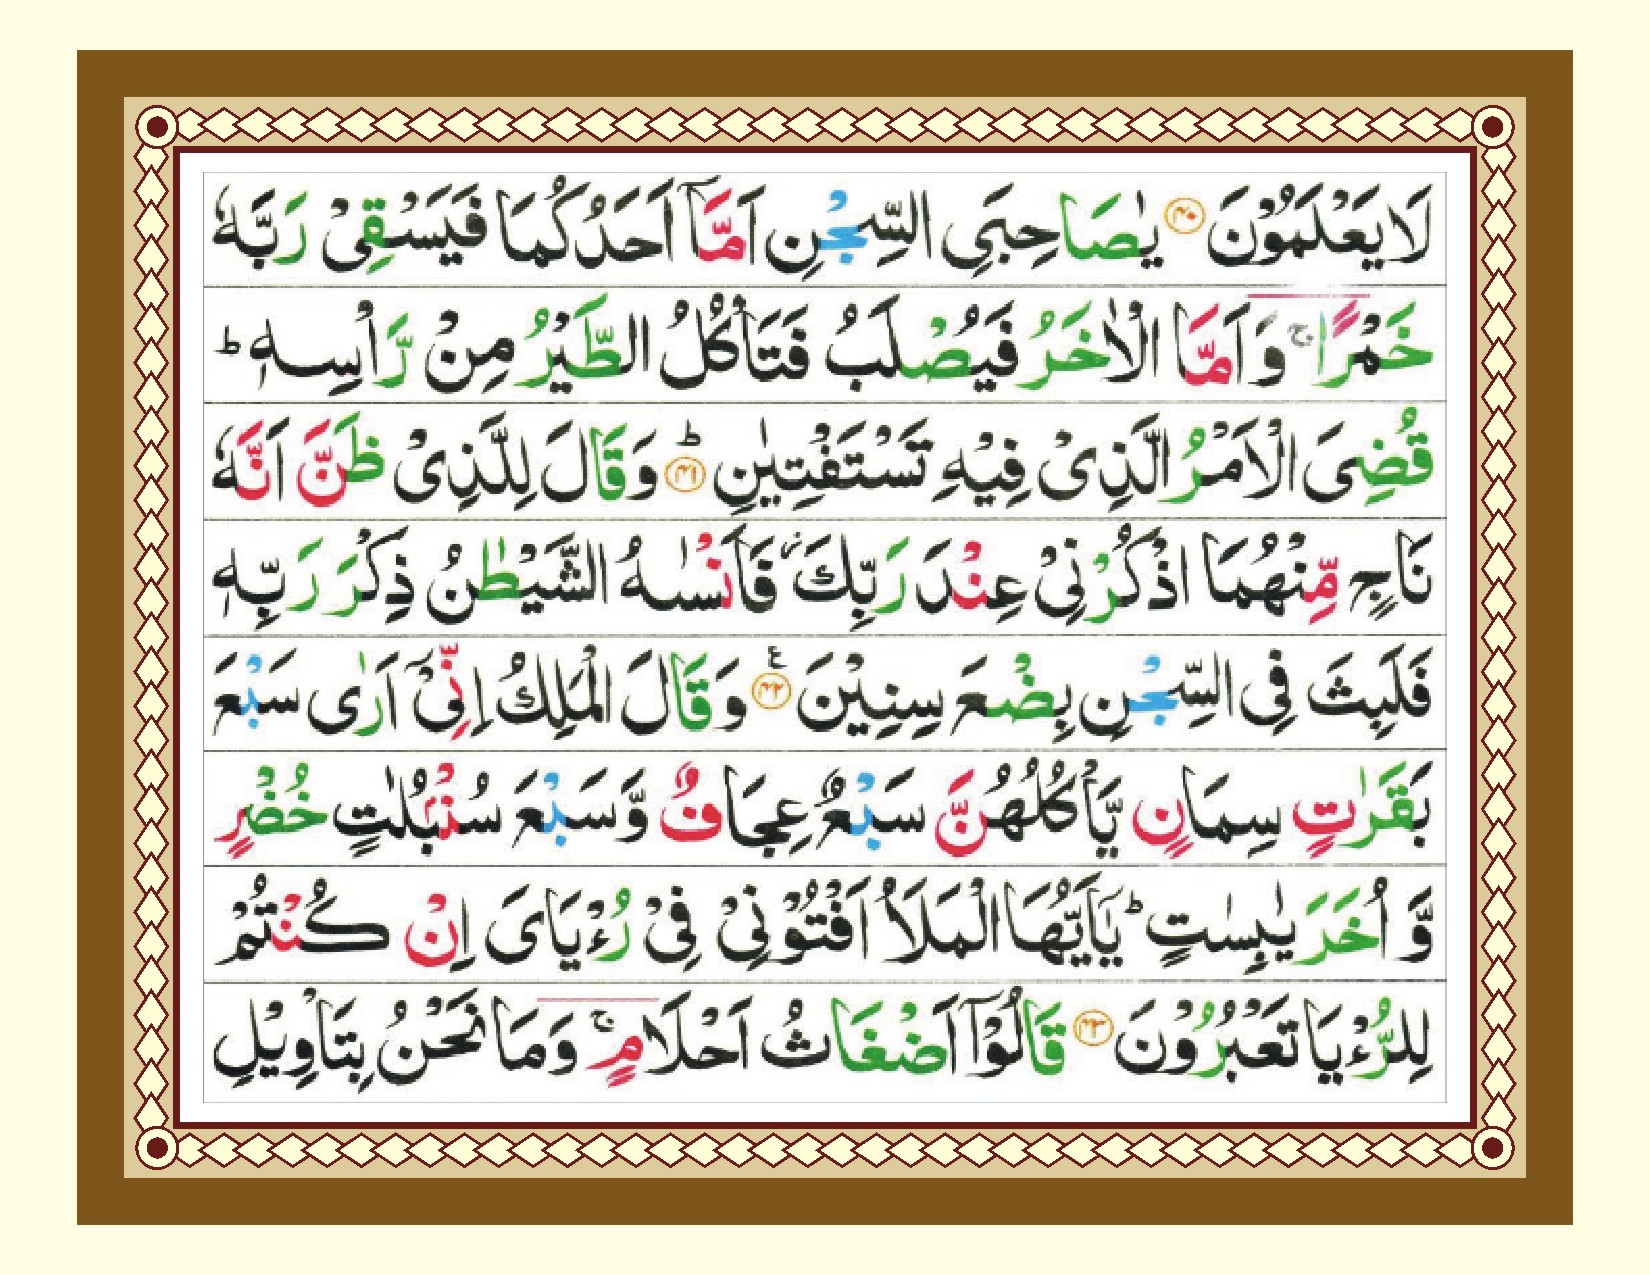 لَا يَعْلَمُوْنَ ۴۰ يٰصَاحِبَيِ السِّجْنِ اَمَّاۤ اَحَدُكُمَا فَيَسْقِىْ رَبَّهٗ
خَمْرًا ۚ وَاَمَّا الْاٰخَرُ فَيُصْلَبُ فَتَاْكُلُ الطَّيْرُ مِنْ رَّاْسِهٖ ؕ
قُضِىَ الْاَمْرُ الَّذِىْ فِيْهِ تَسْتَفْتِيٰنِ ؕ ۴۱ وَقَالَ لِلَّذِىْ ظَنَّ اَنَّهٗ
نَاجٍ مِّنْهُمَا اذْكُرْنِىْ عِنْدَ رَبِّكَ ز فَاَنْسٰىهُ الشَّيْطٰنُ ذِكْرَ رَبِّهٖ
فَلَبِثَ فِى السِّجْنِ بِضْعَ سِنِيْنَ ع ۴۲ وَقَالَ الْمَلِكُ اِنِّىْۤ اَرٰى سَبْعَ
بَقَرٰتٍ سِمَانٍ يَّاْكُلُهُنَّ سَبْعٌ عِجَافٌ وَّسَبْعَ سُنْۢبُلٰتٍ خُضْرٍ
وَّ اُخَرَ يٰبِسٰتٍ ؕ يٰۤاَيُّهَا الْمَلَاُ اَفْتُوْنِىْ فِىْ رُءْيَاىَ اِنْ كُنْتُمْ
لِلرُّءْيَا تَعْبُرُوْنَ ۴۳ قَالُوْۤا اَضْغَاثُ اَحْلَامٍ ۚ وَمَا نَحْنُ بِتَاْوِيْلِ